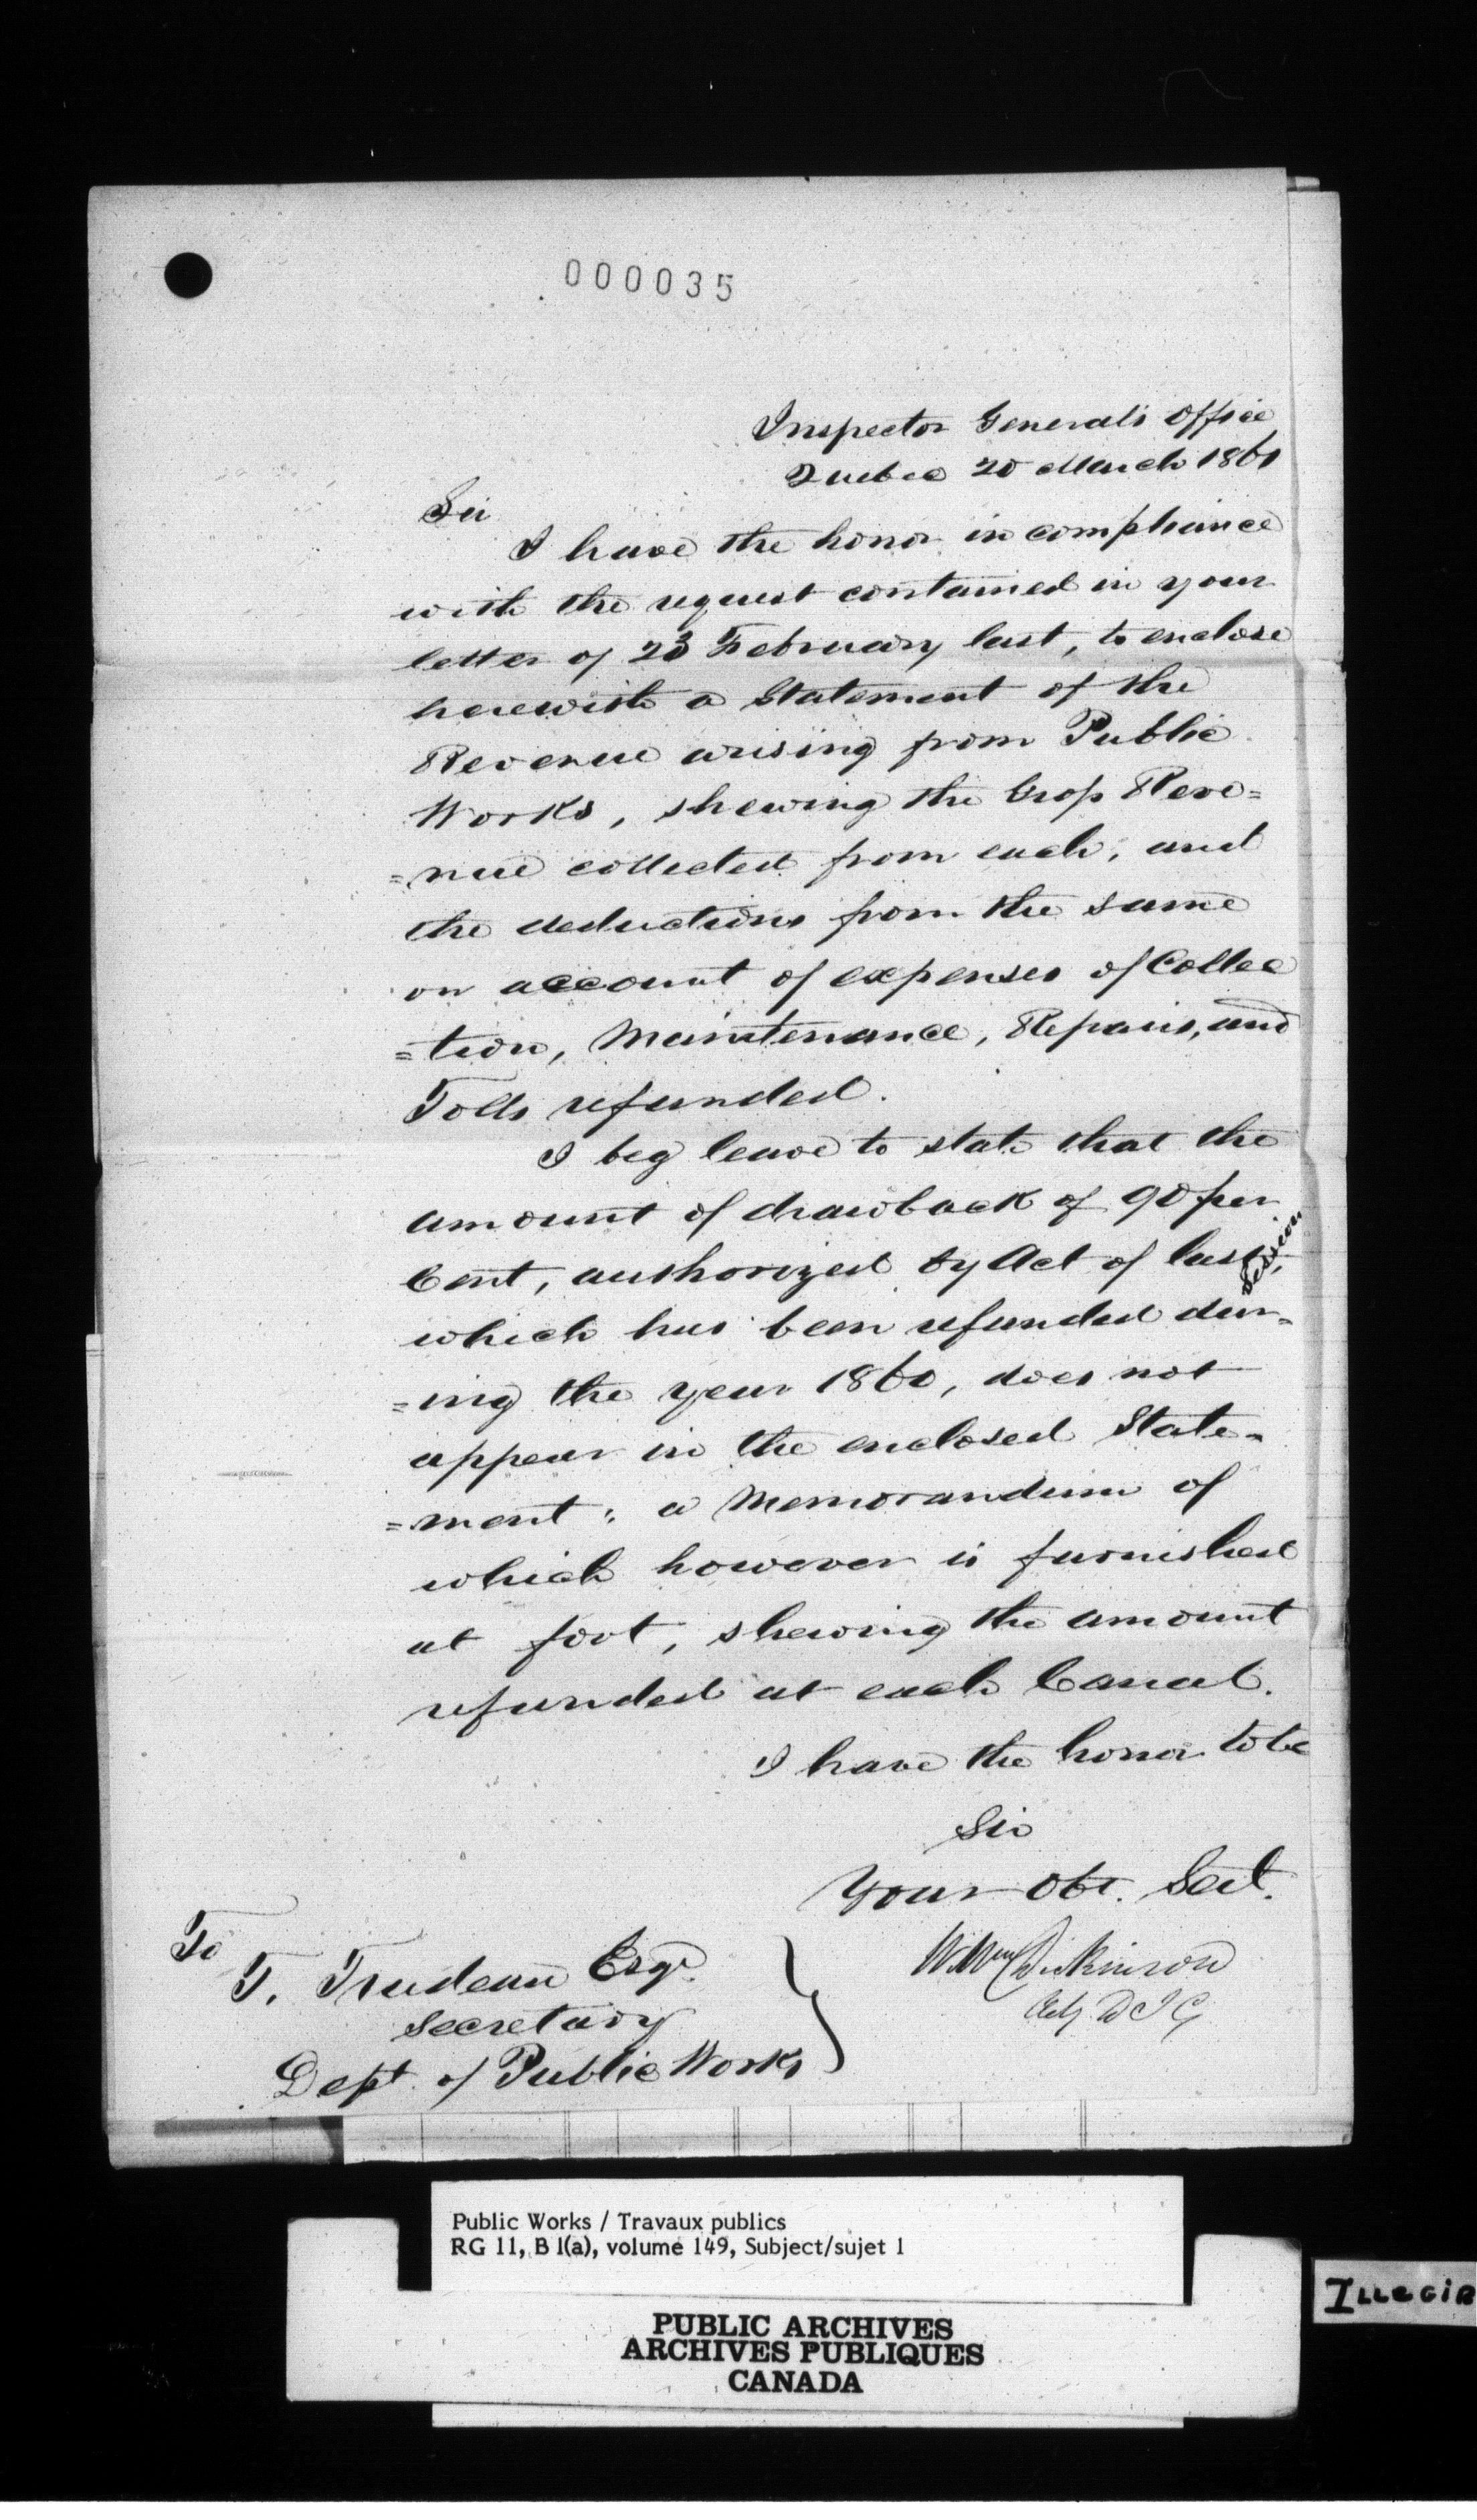 000035
Inspector General's Office
Quebec 20 March 1861
Sir
I have the honor in compliance
with the request contained in your
letter of 23 February last, to enclose
herewith a Statement of the
Revenue arising from Public
Works, shewing the Gross Reve=
=nue collected from each, and
the deductions from the same
on account of expenses of Collec
=tion, Maintenance, Repairs, and
Tolls refunded.
I beg leave to state that the
amount of drawback of 90 per
Cent, authorized by Act of last Session,
which has been refunded dur=
=ing the year 1860, does not
appear in the enclosed State=
=ment; a Memorandum of
which however is furnished
at foot, shewing the amount
refunded at each Canal.
I have the honor to be
Sir
Your Obt. Servt.
Wm Dickinson
Actg D I G
To
T. Trudeau Esqr.
Secretary
Dept. of Public Works
Public Works / Travaux publics
RG 11, B 1(a), volume 149, Subject/sujet 1
PUBLIC ARCHIVES
ARCHIVES PUBLIQUES
CANADA